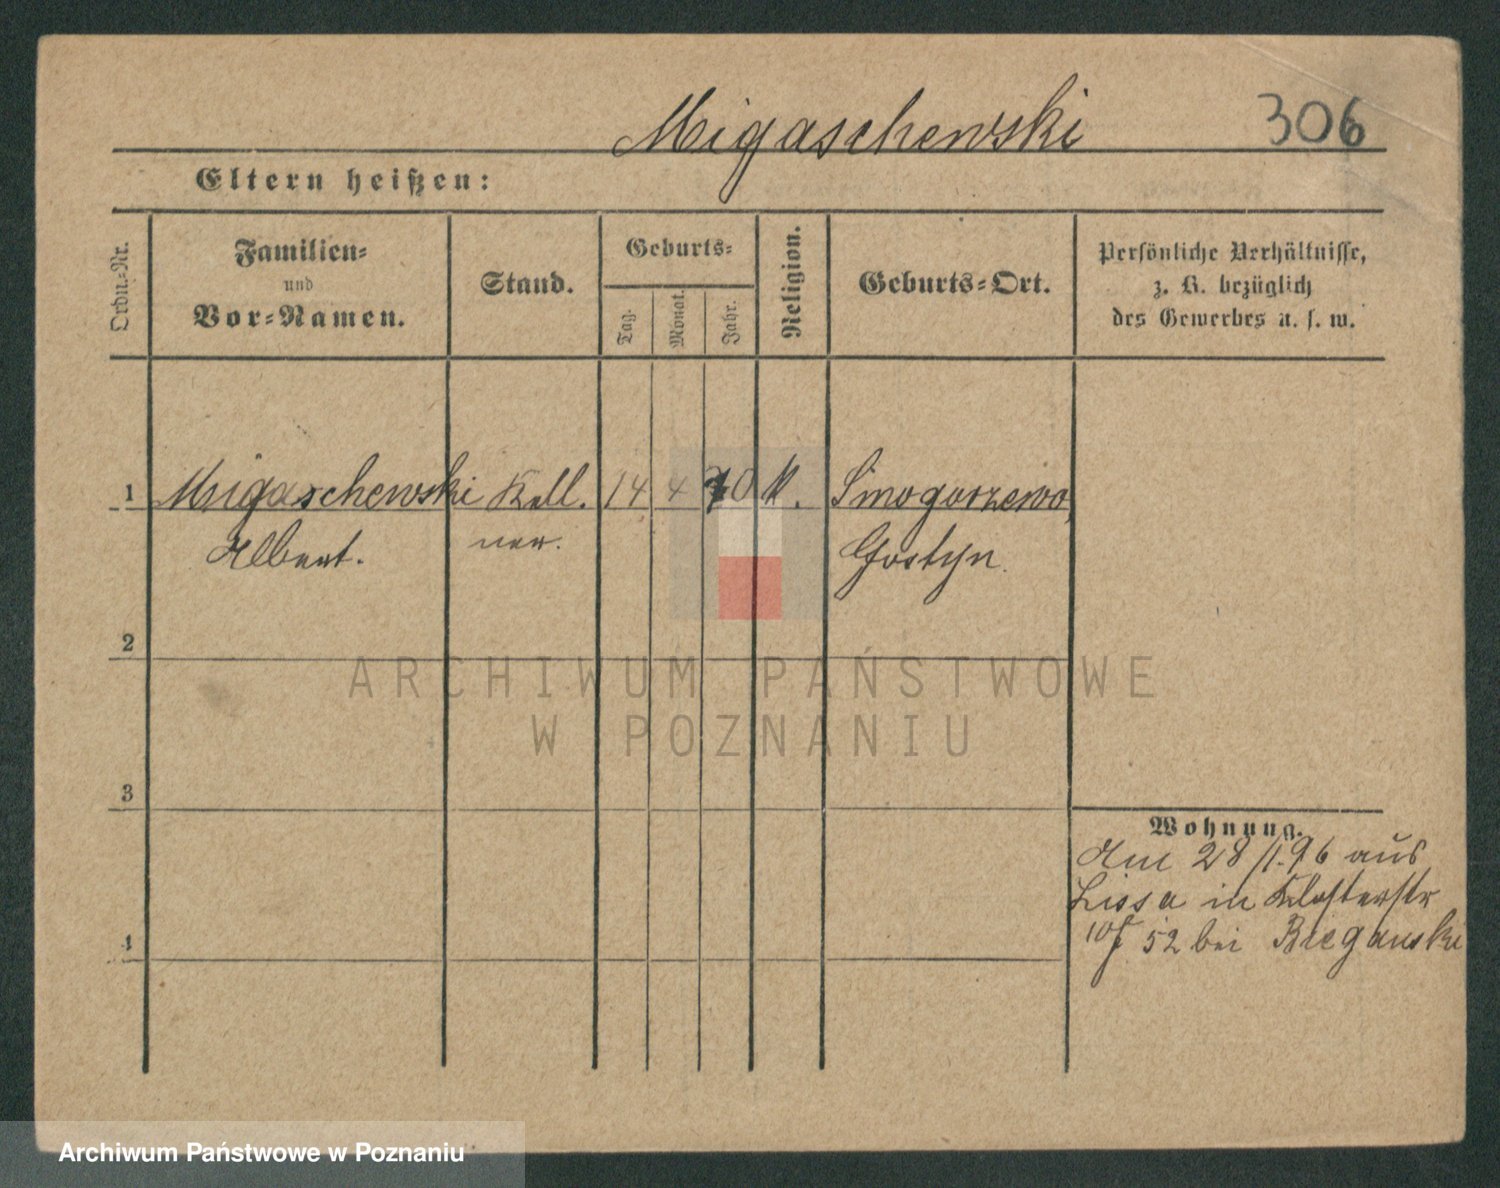 Migaschewski 306
Eltern heißen:
Ordn.-Nr.
Familien-
und
Vor-Namen.
Stand.
Geburts-
Tag.
Monat.
Jahr.
Religion.
Geburts-Ort.
Persönliche Verhältnisse,
z. B. bezüglich
des Gewerbes u. s. w.
1 Migaschewski Kell. 14 4 70 K. Smogorzewo,
Albert. ner. Gostyn.
2
ARCHIWUM PAŃSTWOWE
W POZNANIU
3
Wohnung.
Am 28/1.96 aus
Lissa in Klosterstr
52 bei Bieganski
4
Archiwum Państwowe w Poznaniu